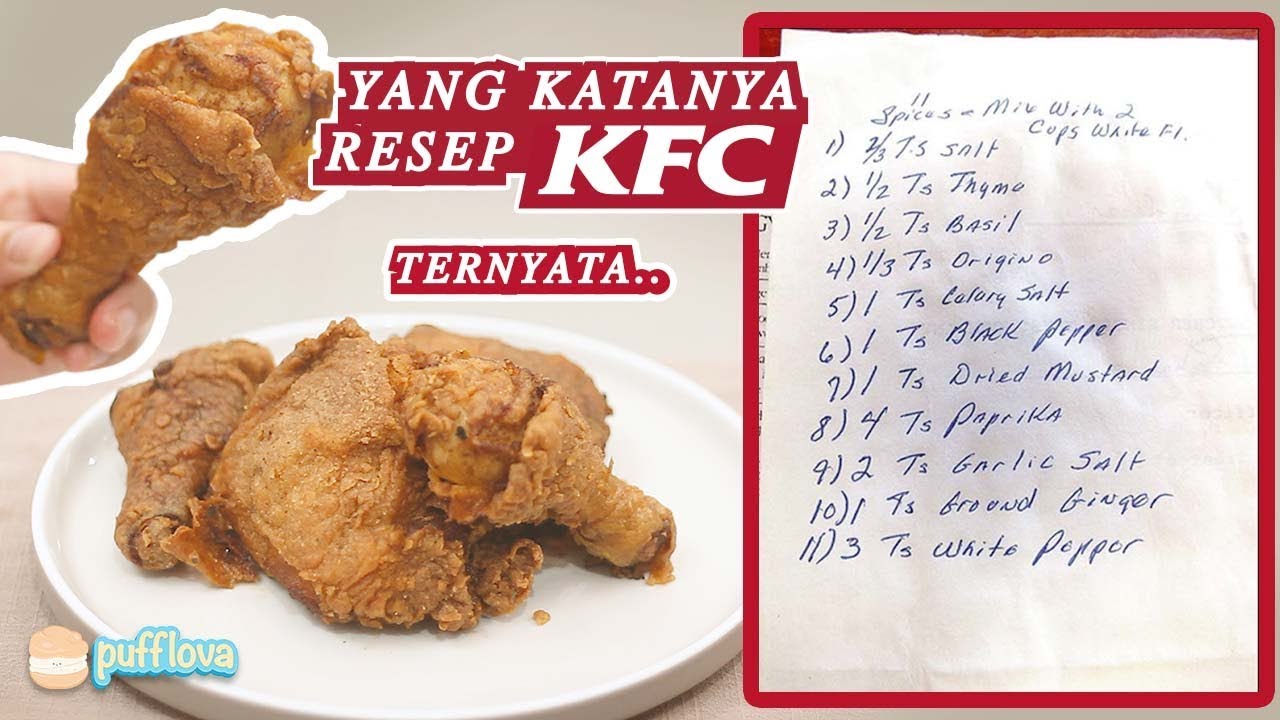 YANG KATANYA
RESEP KFC
TERNYATA..
pufflova
11
Spices - Mix With 2
Cups White Fl.
1) 2/3 Ts SALT
2) 1/2 Ts Thyme
3) 1/2 Ts BASIL
4) 1/3 Ts Origino
5) 1 Ts Celary SALT
6) 1 Ts BLACK Pepper
7) 1 Ts Dried Mustard
8) 4 Ts PAprikA
9) 2 Ts GArlic SALT
10) 1 Ts Ground Ginger
11) 3 Ts White Pepper